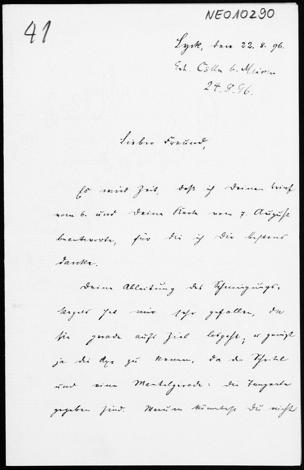 NEO10290
41
Lyck, den 22. 8. 96.
Cölln b. Meissn
24.8.96.
Lieber Freund,
Es wird Zeit, daß ich Deinen Brief
vom 6. und Deine Karte vom 7. August
beantworte, für die ich Dir bestens
danke.
Deine Ableitung des Schmiegungs-
kegels hat mir sehr gefallen, da
sie gerade aufs Ziel losgeht; es genügt
ja die Axe zu kennen, da der Scheitel
und eine Mantelgerade: die Tangente
gegeben sind. Warum könntest Du nicht